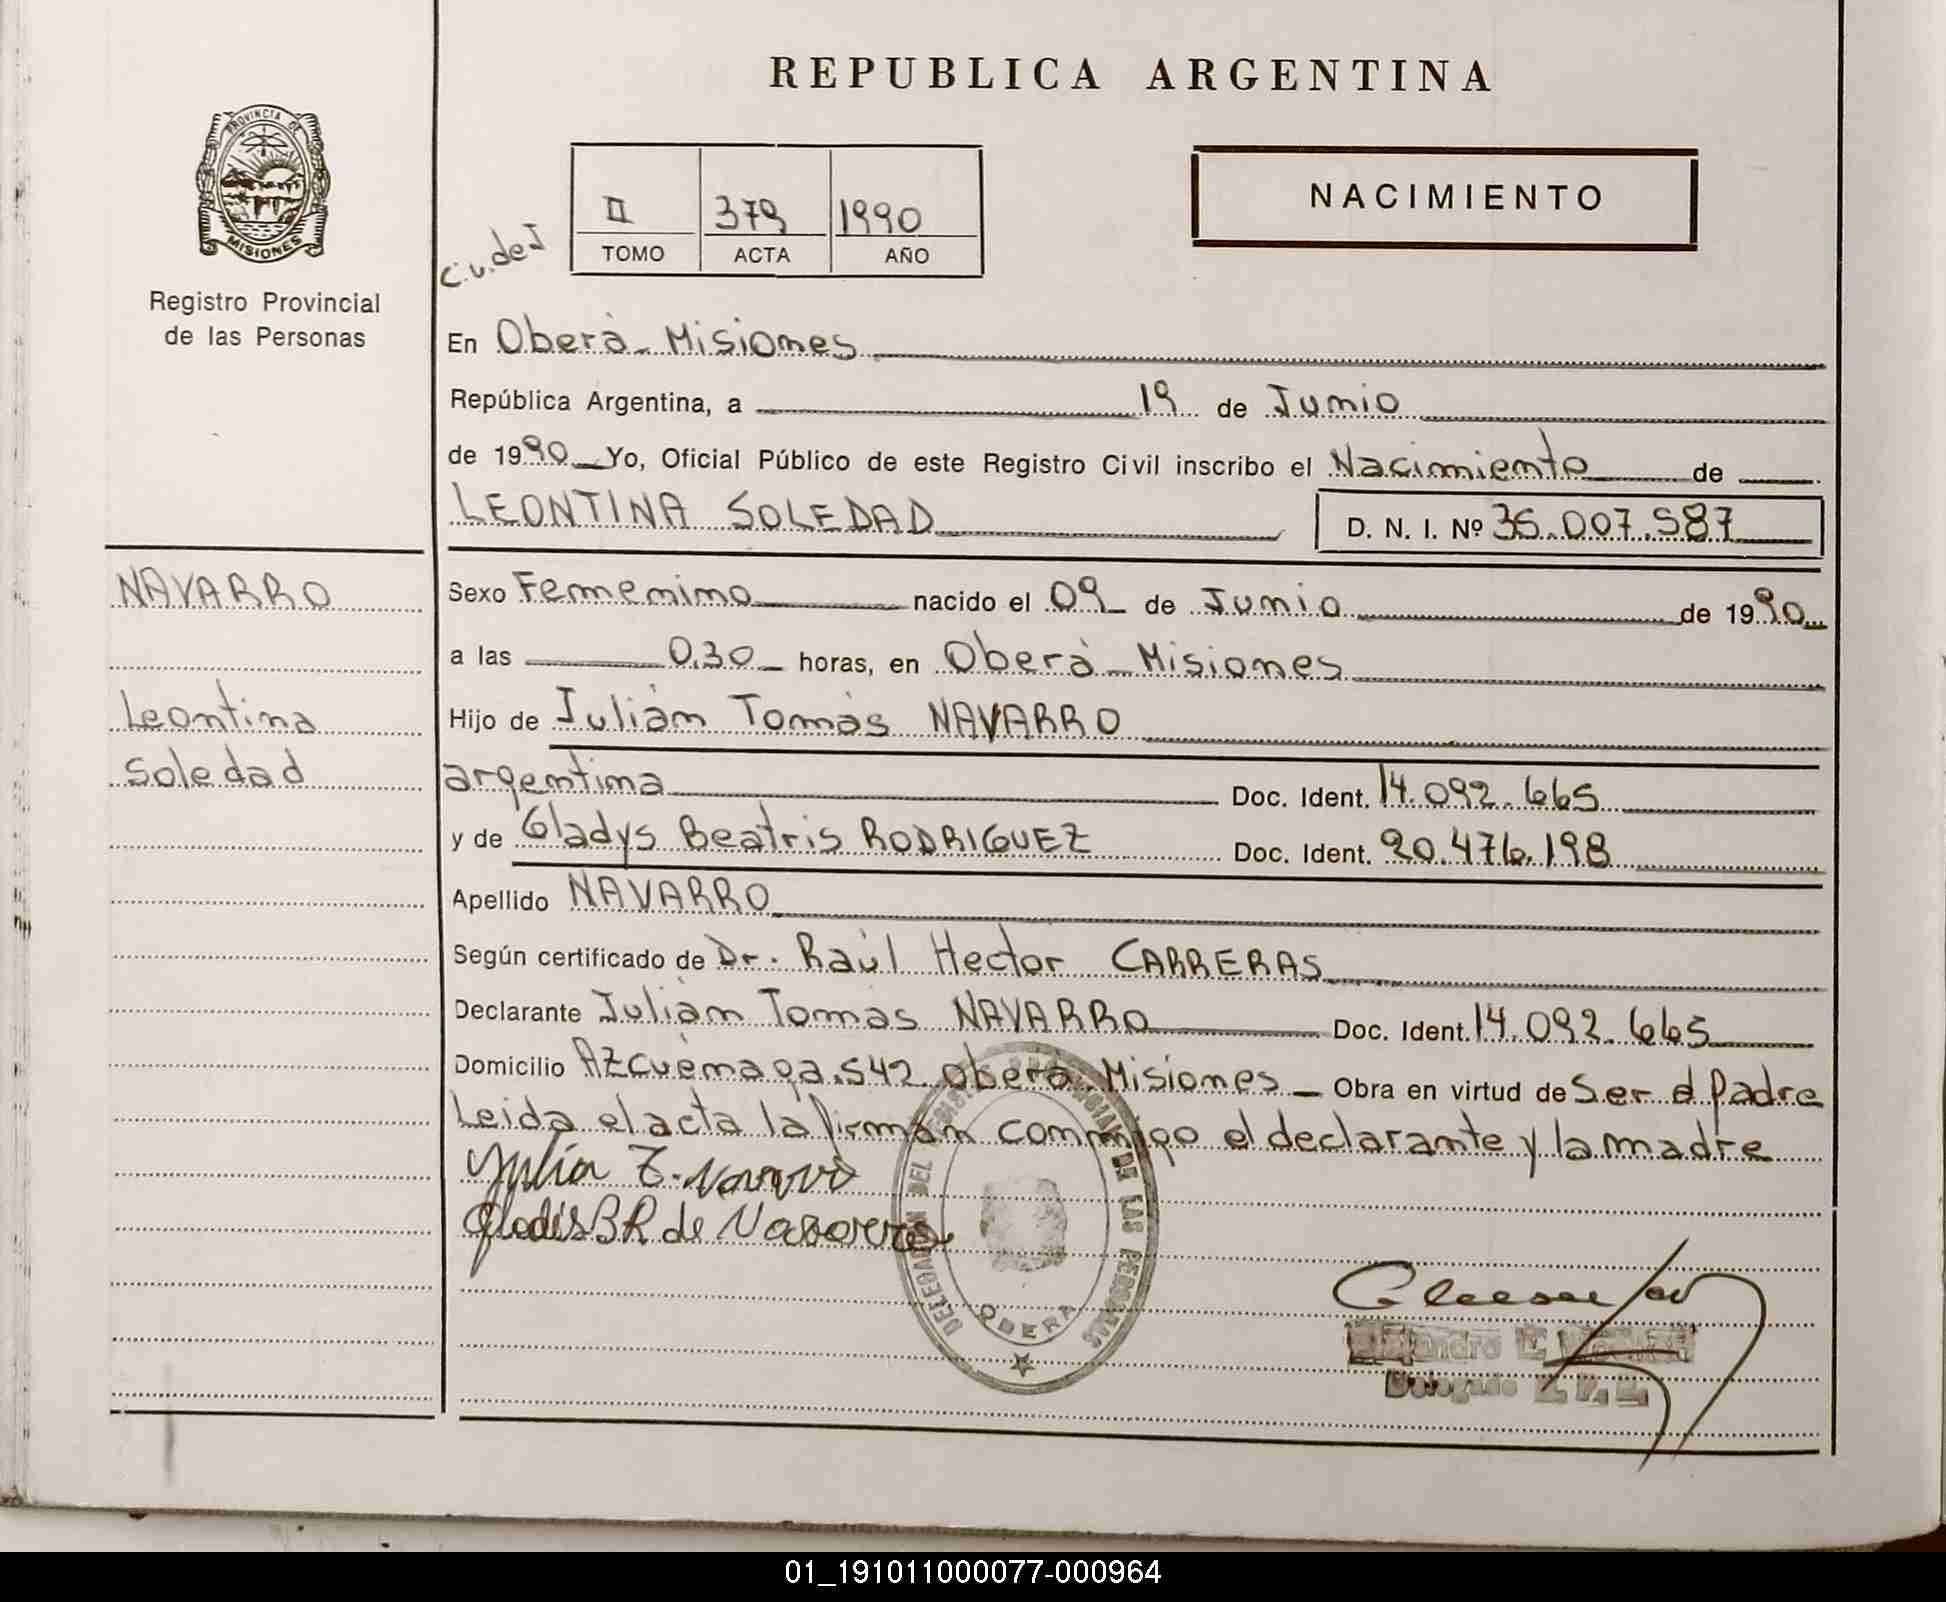 REPUBLICA ARGENTINA
PROVINCIA DE
MISIONES
Registro Provincial
de las Personas
NACIMIENTO
II 379 1990
TOMO ACTA AÑO
En Oberà - Misiones
República Argentina, a 19 de Junio
de 1990 Yo, Oficial Público de este Registro Civil inscribo el Nacimiento de
LEONTINA SOLEDAD D. N. I. Nº 35.007.587
NAVARRO
Leontina
Soledad
Sexo Femenino nacido el 09 de Junio de 1990
a las 0,30 horas, en Oberà - Misiones
Hijo de Juliàn Tomàs NAVARRO
argentina Doc. Ident. 14.092.665
y de Gladys Beatris RODRIGUEZ Doc. Ident. 20.476.198
Apellido NAVARRO
Según certificado de Dr. Raùl Hector CARRERAS
Declarante Juliàn Tomàs NAVARRO Doc. Ident. 14.092.665
Domicilio Azcuènaga 542 Oberà Misiones - Obra en virtud de Ser el Padre
Leida el acta la firman conmigo el declarante y la madre
Julian T. Navarro
Gladis B R de Navarro
DELEGACION DEL REGISTRO PROVINCIAL DE LAS PERSONAS
OBERA
Alejandro E.
Delegado
01_191011000077-000964